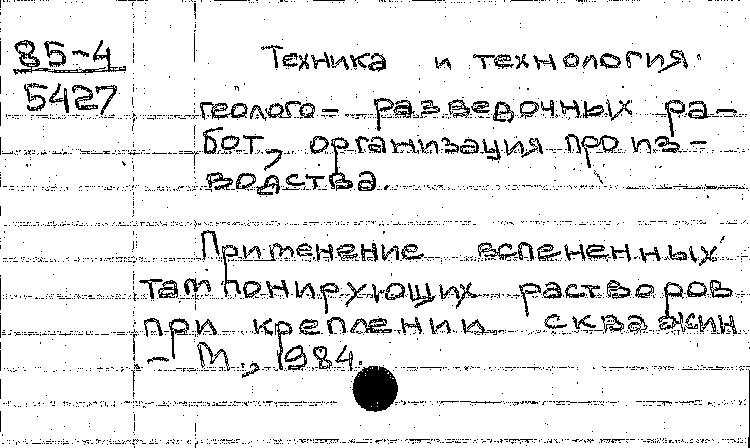 85-4
5427
Техника и технология
геолого-разведочных ра-
бот, организация произ-
водства.
Применение вспененных
тампонирующих растворов
при креплении скважин
- М., 1984.